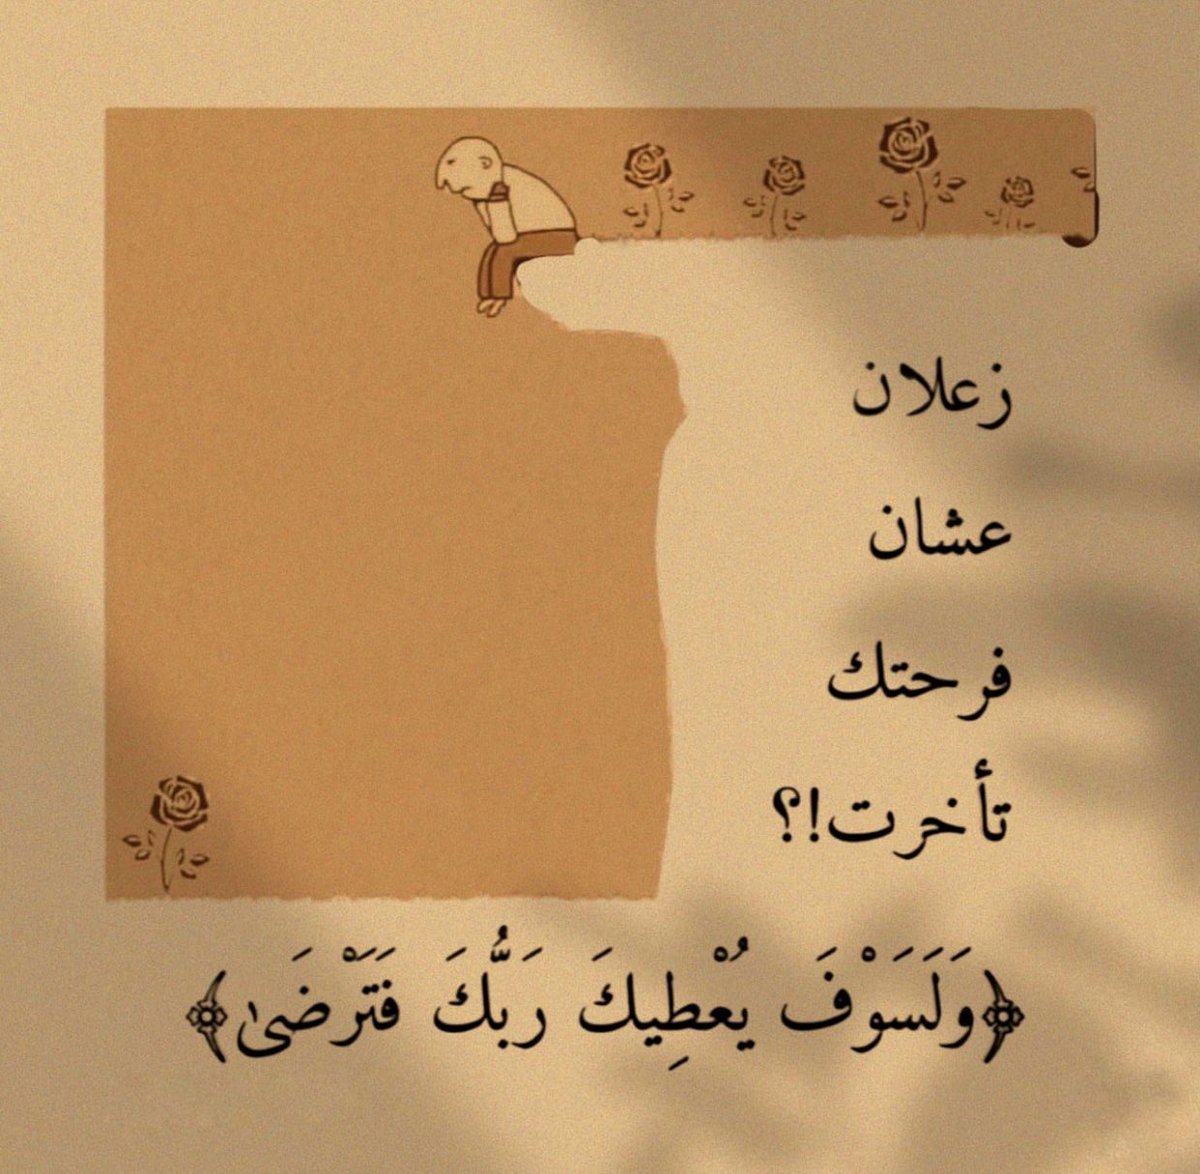 زعلان
عشان
فرحتك
تأخرت!؟
﴿وَلَسَوْفَ يُعْطِيكَ رَبُّكَ فَتَرْضَىٰ﴾